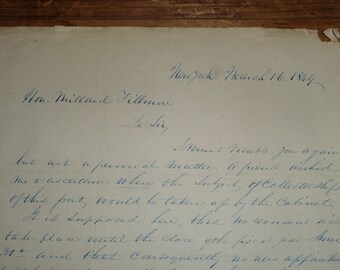 New York March 16 1849
Hon. Millard Fillmore
Dr Sir
I must trouble you again
but not a personal matter. A friend wished
me to ascertain when the Subject of Collectorship
of this port, would be taken up by the Cabinet
It is supposed here, that no removal will
take place until the close of the fiscal year June
30th and that Consequently no new appointm